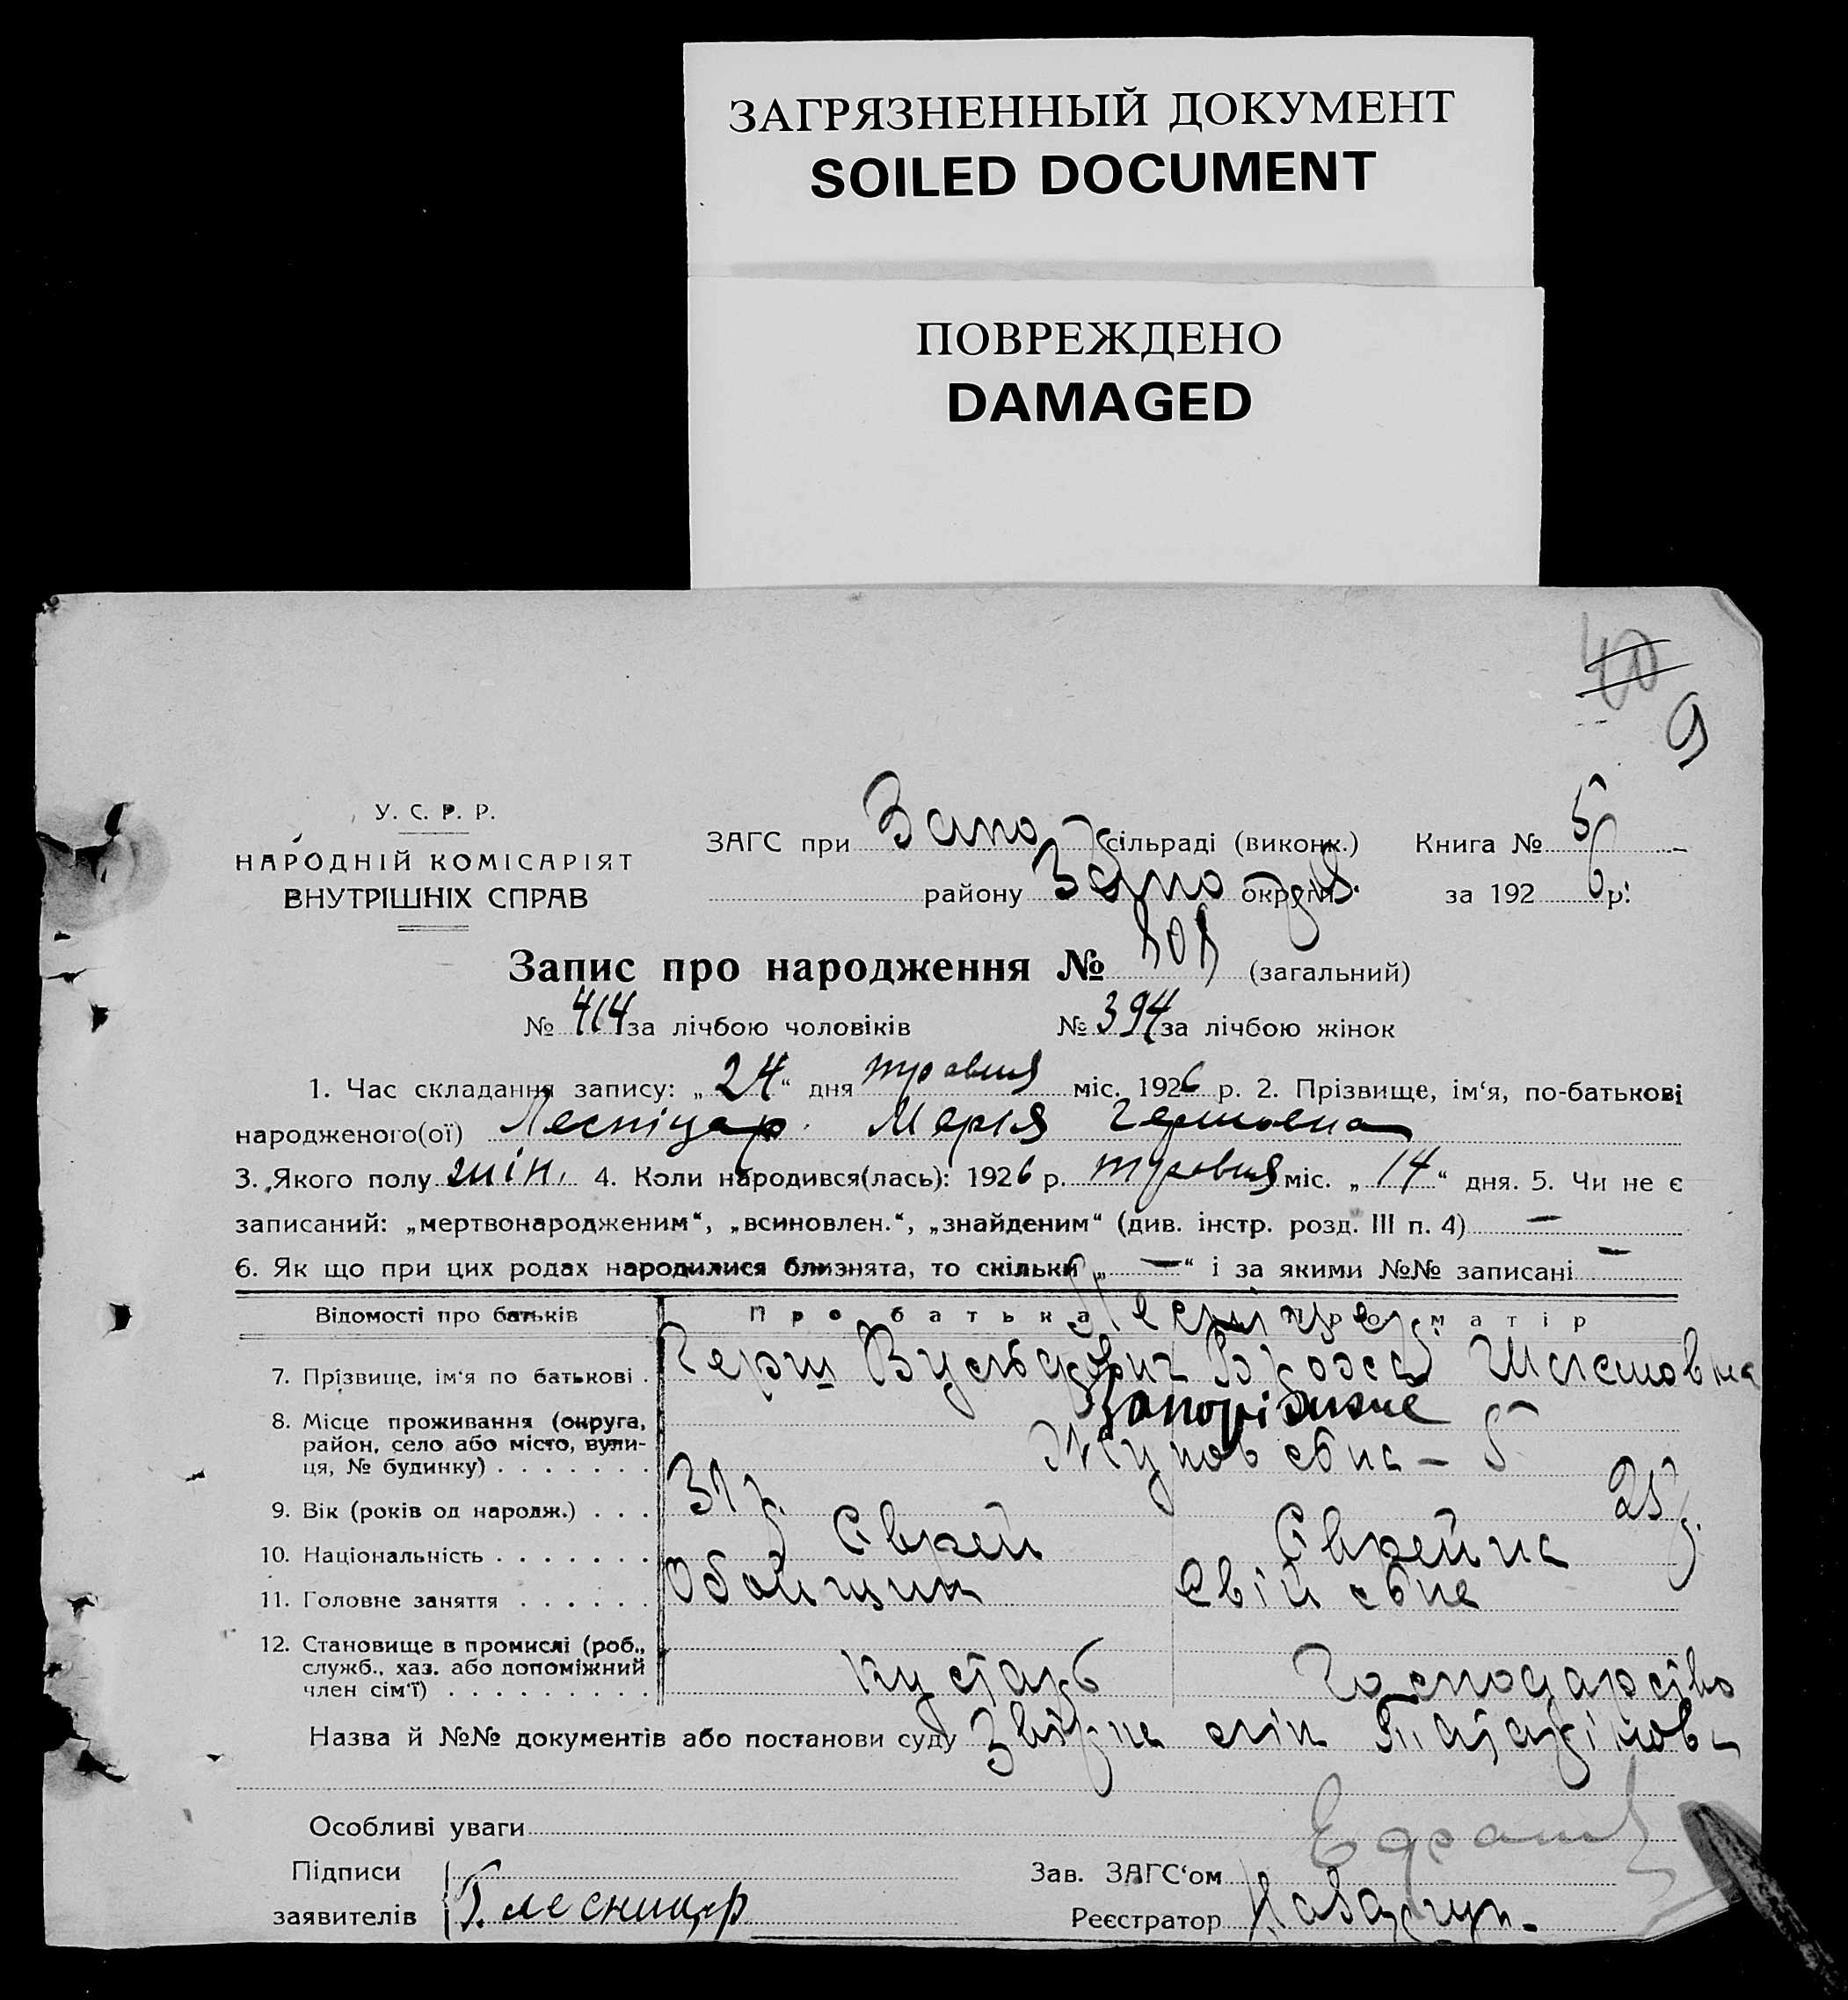 ЗАГРЯЗНЕННЫЙ ДОКУМЕНТ
SOILED DOCUMENT
ПОВРЕЖДЕНО
DAMAGED
40
9
У. С. Р. Р.
НАРОДНІЙ КОМІСАРІЯТ
ВНУТРІШНІХ СПРАВ
ЗАГС при Запо сільраді (виконк.) Книга № 5
району Запо округи за 1926 р.
Запис про народження № 808 (загальний)
№ 414 за лічбою чоловіків № 394 за лічбою жінок
1. Час складання запису: „24“ дня травня міс. 1926 р. 2. Прізвище, ім‘я, по-батькові
народженого(ої) Лесніцер Мерія Гершовна
3. Якого полу жін. 4. Коли народився(лась): 1926 р. травня міс. „14“ дня. 5. Чи не є
записаний: „мертвонародженим“, „всиновлен.“, „знайденим“ (див. інстр. розд. III п. 4) —
6. Як що при цих родах народилися близнята, то скільки „—“ і за якими №№ записані —
Відомості про батьків Про батька Про матір
Лесніцер
7. Прізвище, ім‘я по батькові . Герш
8. Місце проживання (округа, Запоріжже
район, село або місто, вули-
ця, № будинку) . . . . . . . Жуковсбка – 5
9. Вік (років од народж.) . . . 31 р. 25 р.
10. Національність . . . . . . . Єврей Єврейка
11. Головне заняття . . . . . . Обойщик Свійсбке
12. Становище в промислі (роб.,
служб., хаз. або допоміжний
член сім‘ї) . . . . . . . . . кустарь Господарство
Назва й №№ документів або постанови суду
Особливі уваги
Підписи Зав. ЗАГС‘ом
заявителів Г. Лесницер Реєстратор